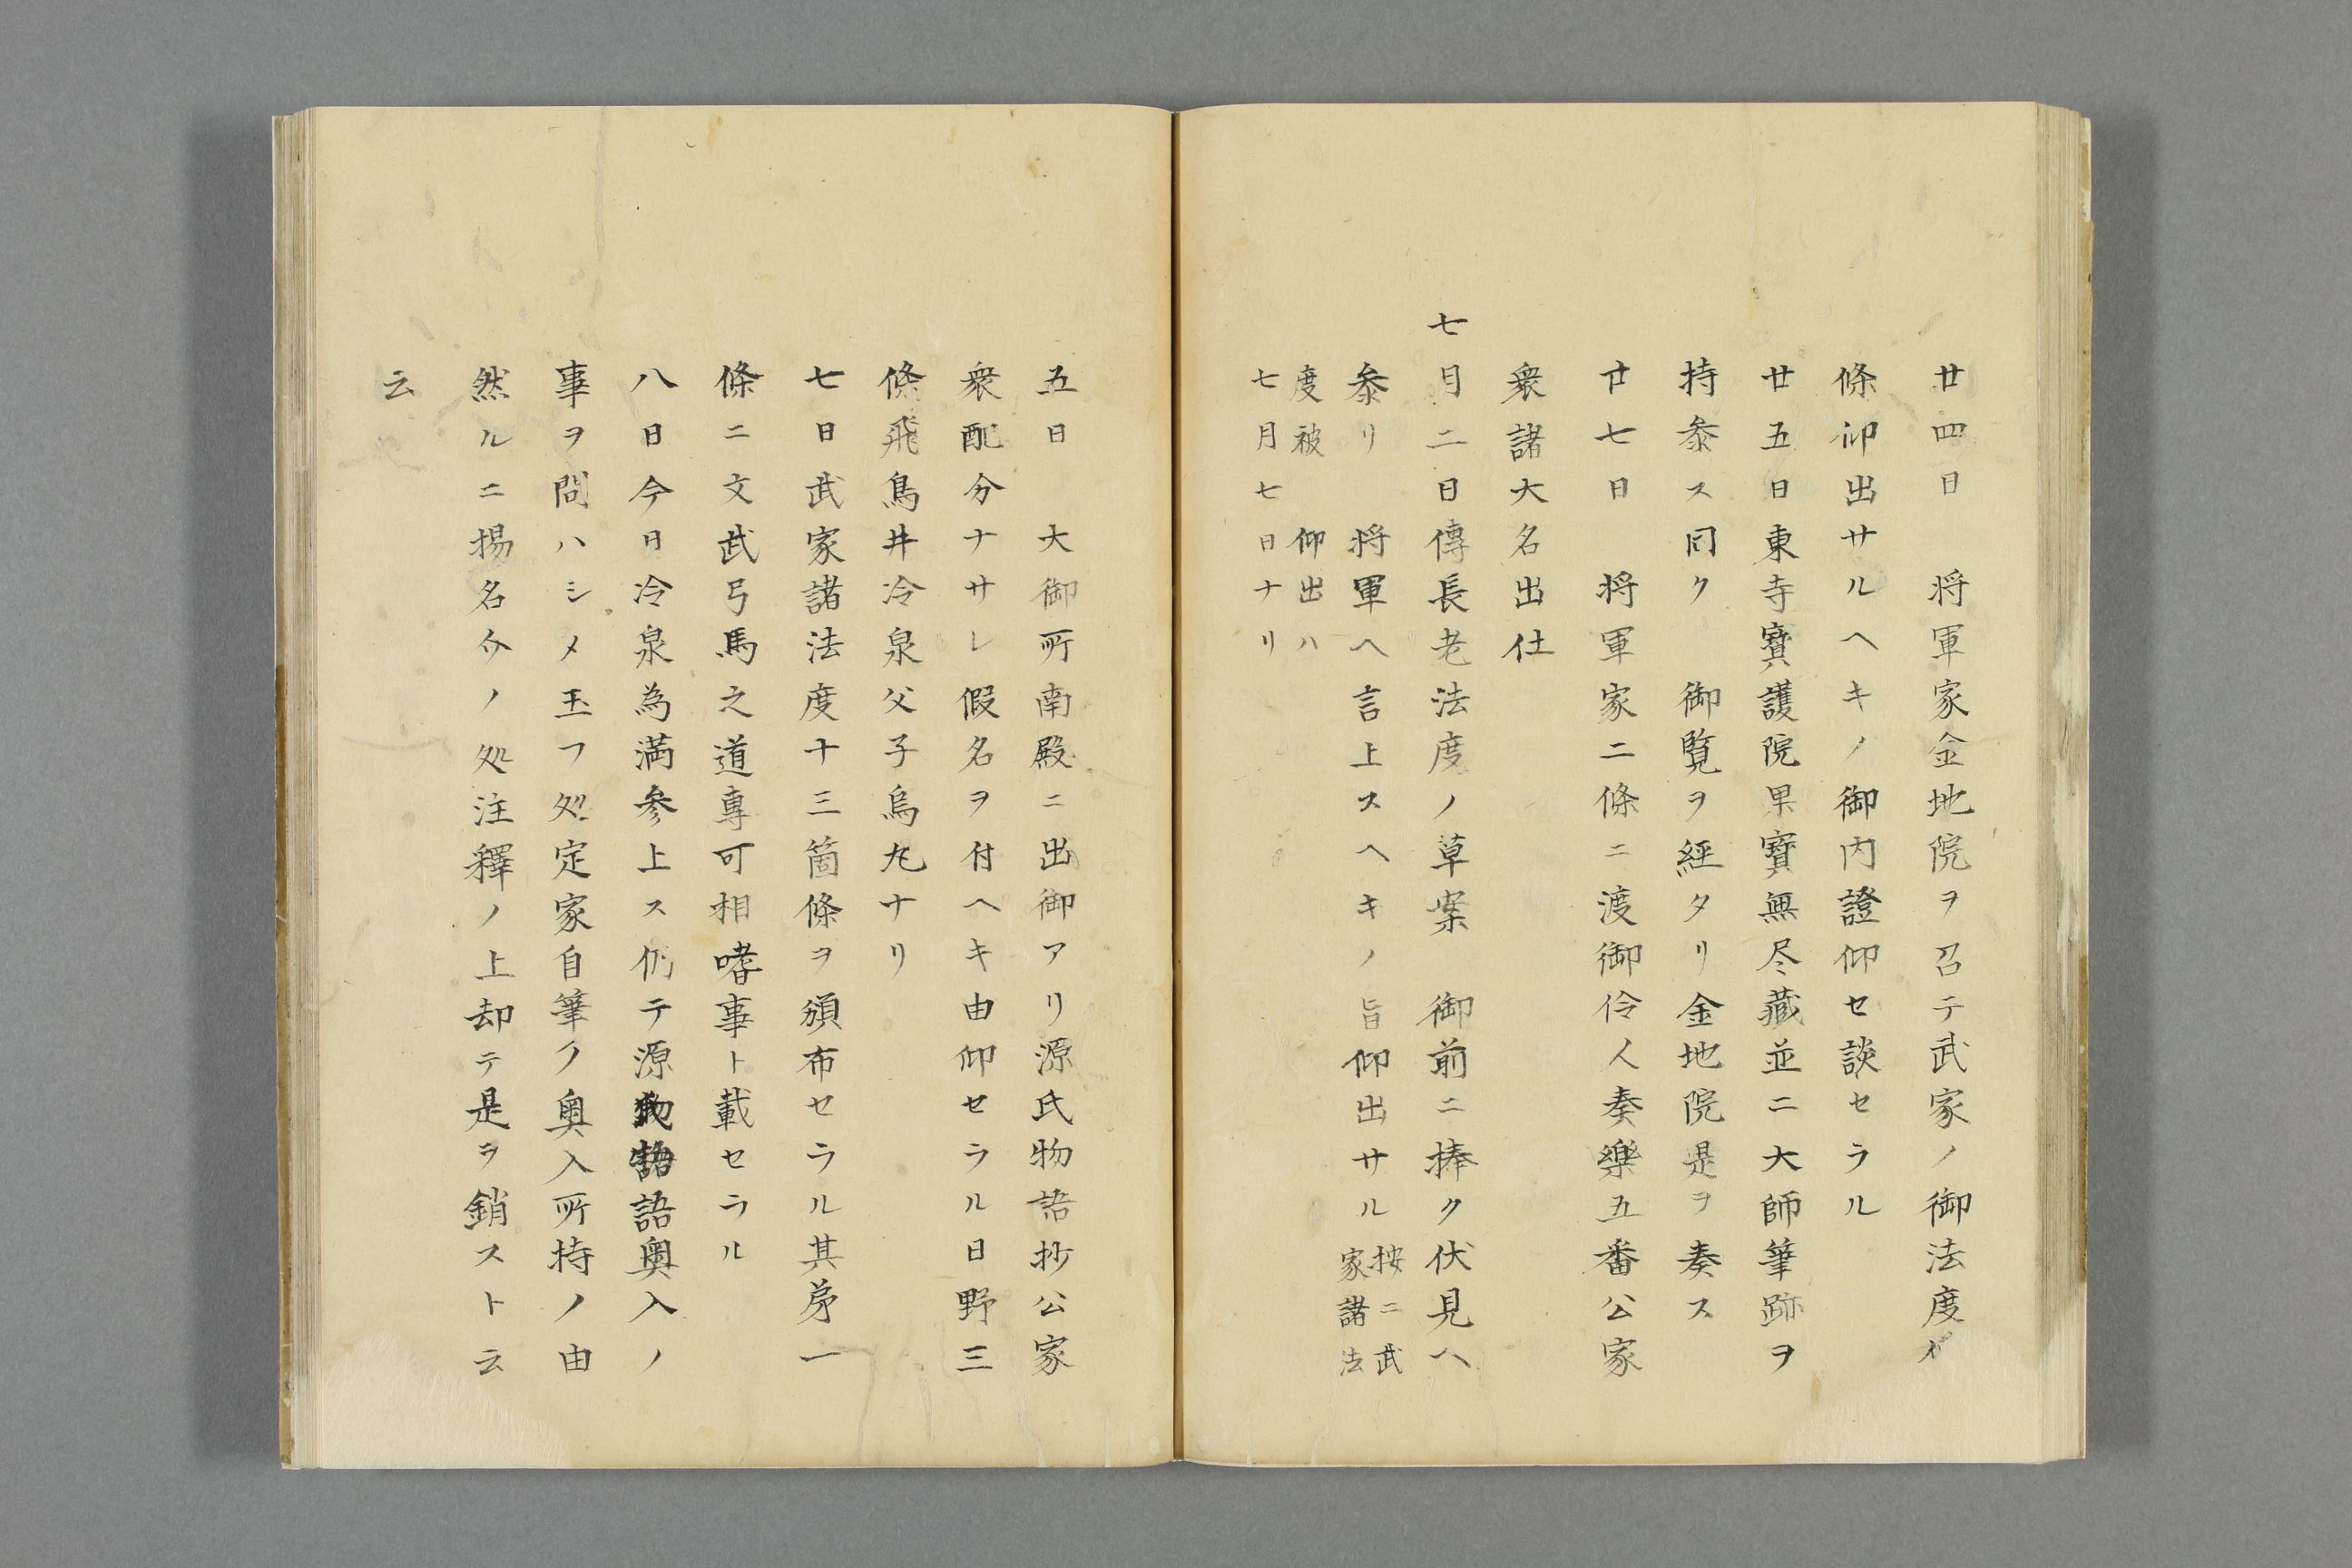 廿四日　将軍家金地院ヲ召テ武家ノ御法度ヶ
條仰出サルヘキノ御内證仰セ談セラル
廿五日東寺寳護院果寳無尽藏並ニ大師筆跡ヲ
持参ス同ク　御覧ヲ経タリ金地院是ヲ奏ス
廿七日　将軍家二條ニ渡御伶人奏樂五番公家
衆諸大名出仕
七月二日傳長老法度ノ草案　御前ニ捧ク伏見ヘ
参リ　将軍ヘ言上スヘキノ旨仰出サル按ニ武
家諸法
度被　仰出ハ
七月七日ナリ
五日　大御所南殿ニ出御アリ源氏物語抄公家
衆配分ナサレ假名ヲ付ヘキ由仰セラル日野三
條飛鳥井冷泉父子烏丸ナリ
七日武家諸法度十三箇條ヲ頒布セラル其㐧一
條ニ文武弓馬之道專可相嗜事ト載セラル
八日今日冷泉為満参上ス仍テ源氏物語奥入ノ
事ヲ問ハシメ玉フ処定家自筆ノ奥入所持ノ由
然ルニ揚名介ノ处注釋ノ上却テ是ヲ銷スト云
云